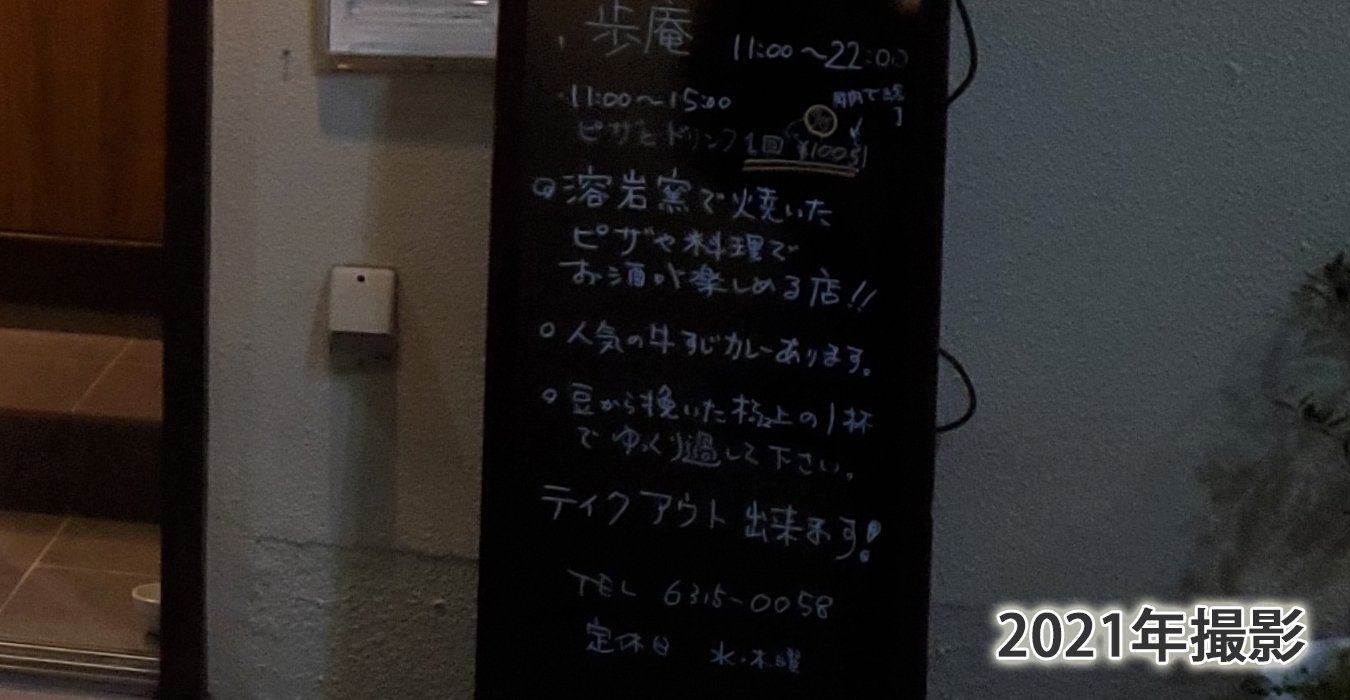 歩庵
11:00～22:00
11:00～15:00
ピザとドリンク1回 ¥100引
月内で終了
溶岩窯で焼いた
ピザや料理で
お酒が楽しめる店!!
○人気の牛すじカレーあります。
○豆から挽いた極上の1杯
でゆっくり過して下さい。
テイクアウト出来ます!
TEL 6315-0058
定休日 水・木曜
2021年撮影